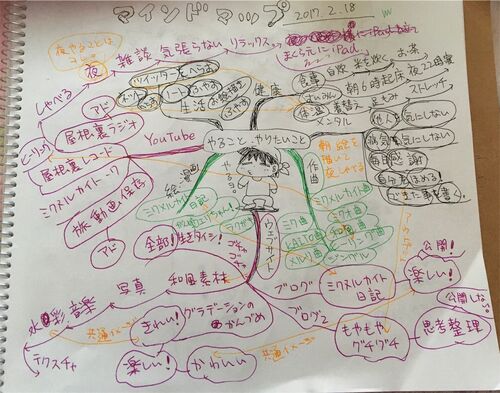 マインドマップ 2017.2.18
夜
雑談 気張らない リラックス
まくら元にiPad
しゃべる
ツイッターをへらす
ネット
ノートをふやす
生活
健康
食事 自炊 米を炊く お茶
朝6時起床 夜22時寝
体温 着替え 足もみ ストレッチ
メンタル
他人を気にしない
病気を気にしない
毎日感謝
自分をほめる
アド
屋根裏ラジオ
YouTube
やること・やりたいこと
ヒーリング
屋根裏レコード
ミクメルカイトトーク
旅動画・保存
アド
絵・漫画
ミクメルカイト日記
やるヨ
全部!生きタイシ!
ゴチャゴチャ
ウェブサイト
作曲
朝絵を描いて
ミクメルカイト曲
ミク曲
ミクオ曲
KAITO曲
和風曲
メルリ曲
ヒーリング曲
シングル
ブログ
ミクメルカイト日記
楽しい!
公開!
公開しない
ブログ2
もやもやグチグチ
思考整理
和風素材
写真
音楽
水彩
テクスチャ
共通イメージ
きれい!
グラデーションのかんづめ
楽しい!
かわいい
共通イメージ